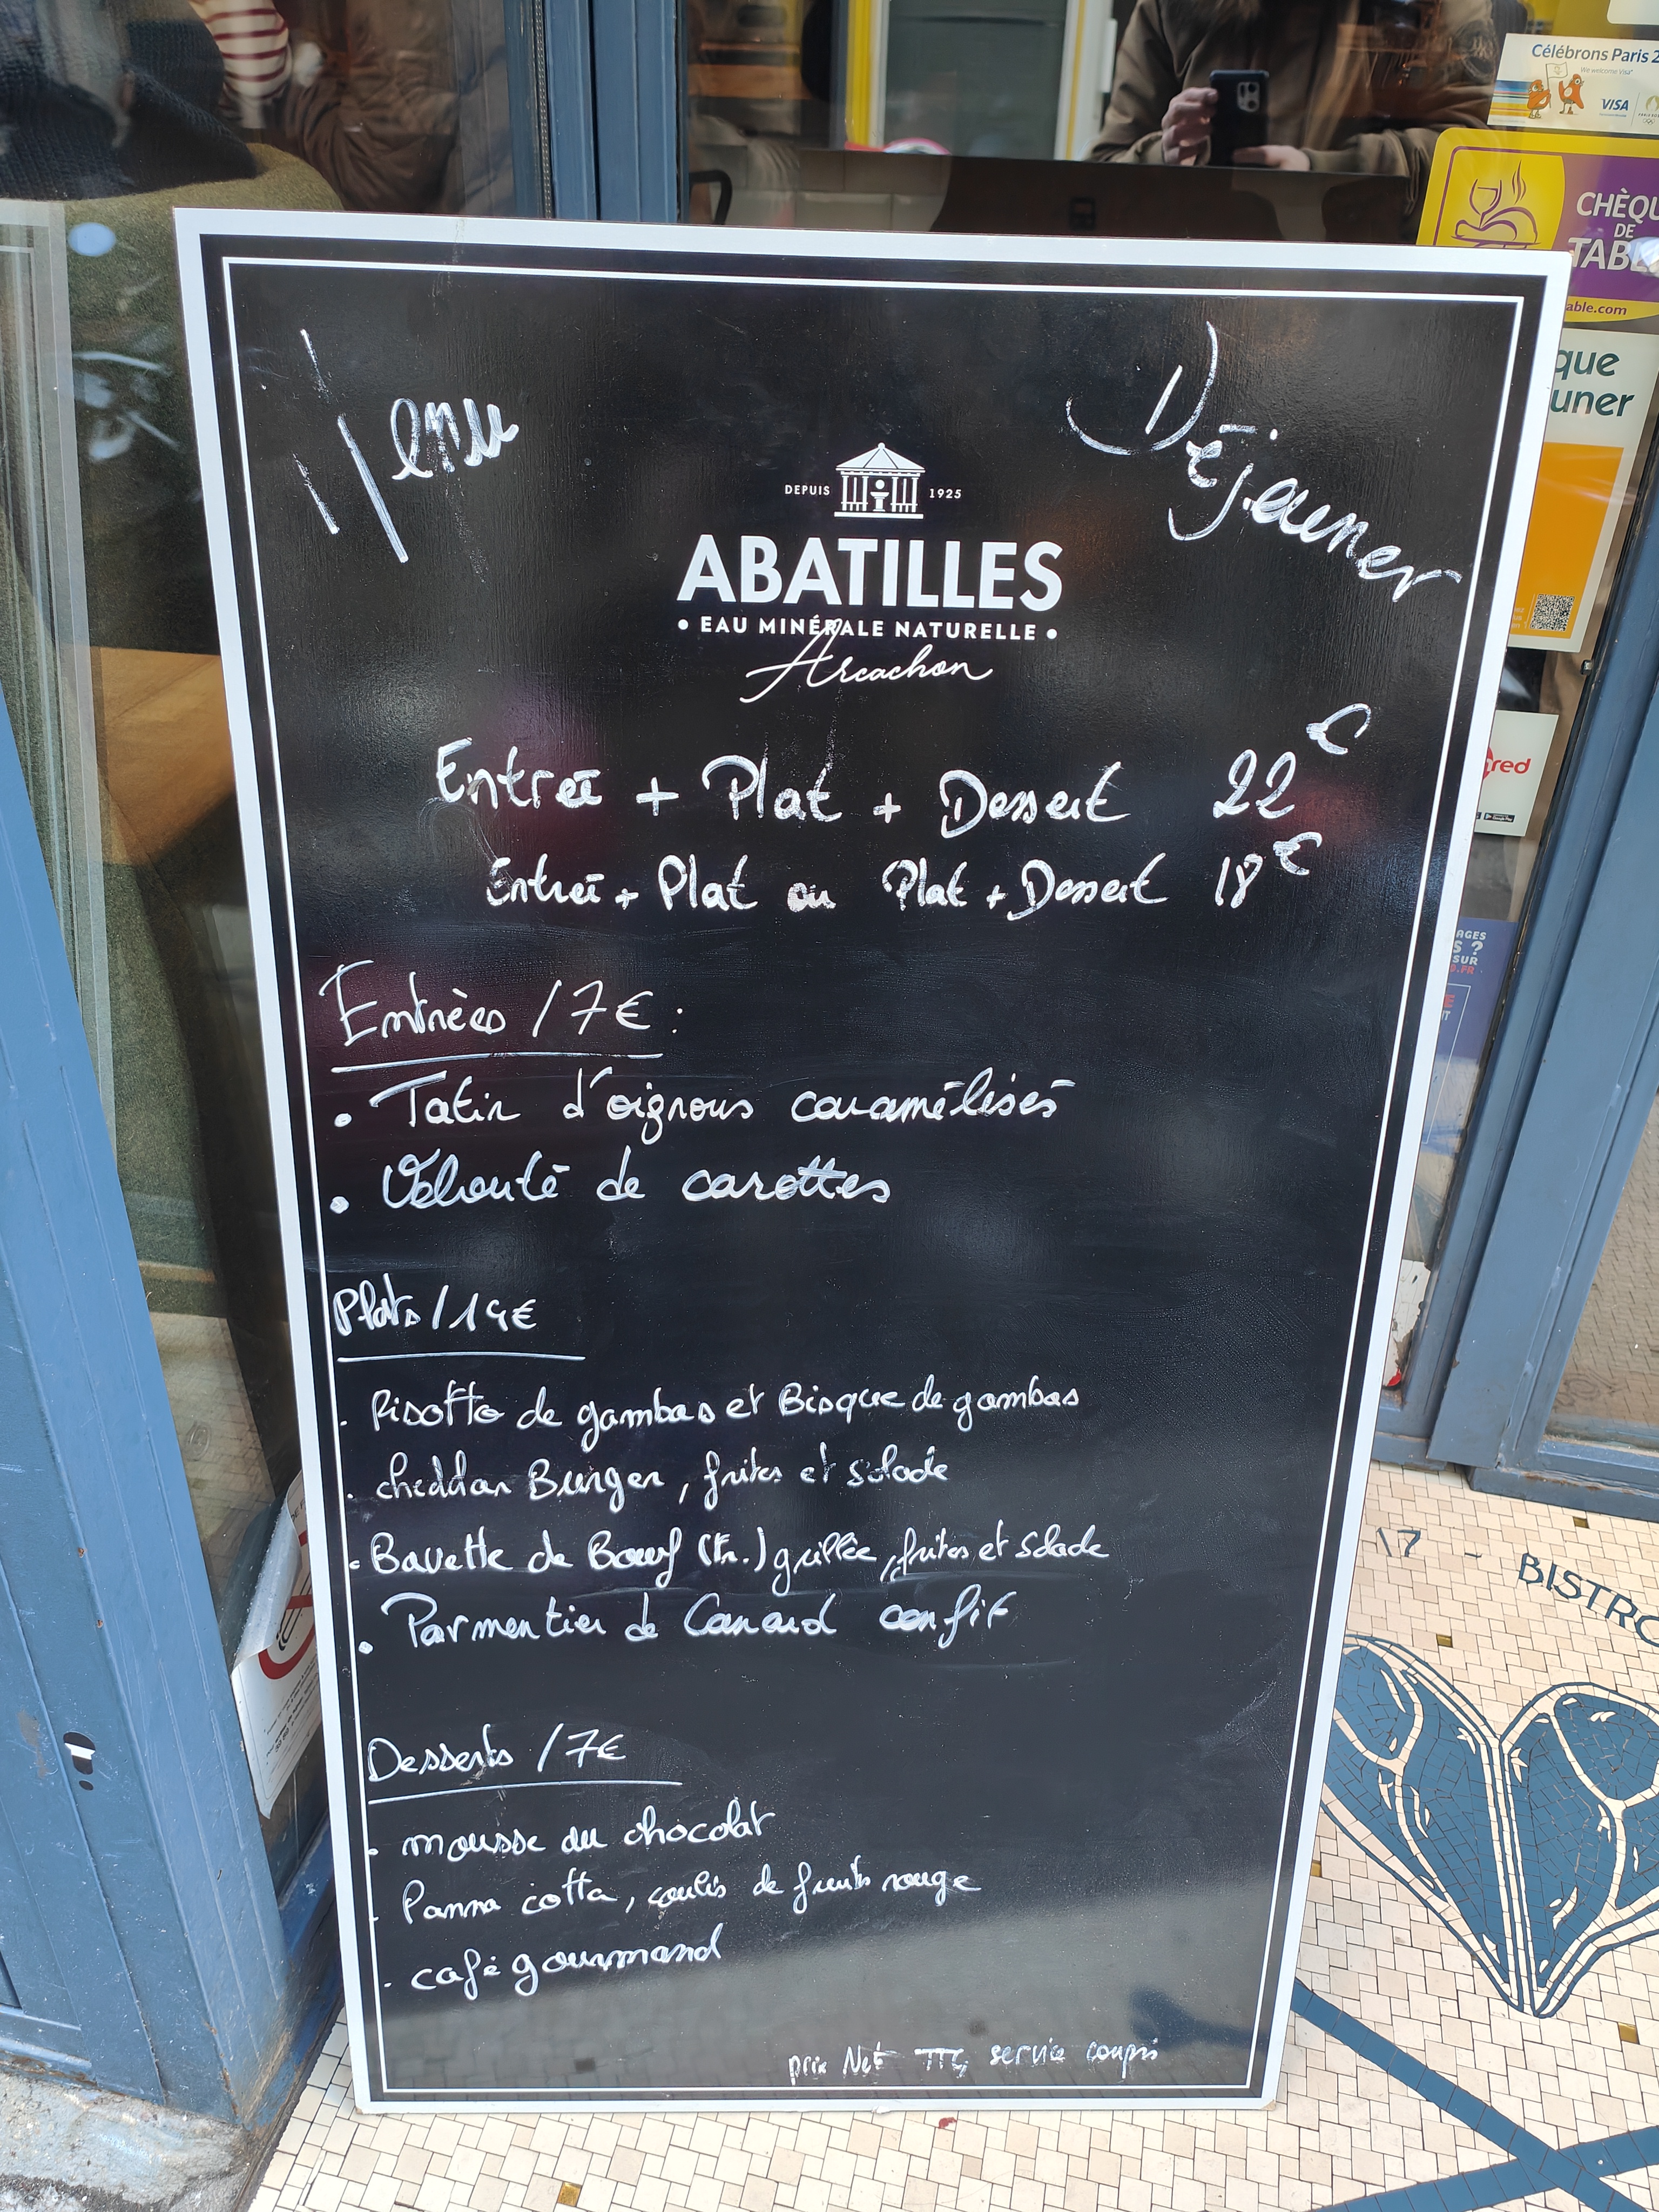 Célébrons Paris 2
We welcome Visa
VISA
CHÈQU
DE
TABL
able.com
que
uner
Menu
Déjeuner
DEPUIS 1925
ABATILLES
• EAU MINÉRALE NATURELLE •
Arcachon
red
Entrée + Plat + Dessert 22€
Entrée + Plat ou Plat + Dessert 18€
AGES
S ?
SUR
.FR
Entrèes / 7€ :
• Tatin d'oignons caramélisés
• Velouté de carottes
Plats / 14€
. Risotto de gambas et Bisque de gambas
. cheddar Burger, frites et salade
. Bavette de Bœuf (Fr.) grillée, frites et salade
. Parmentier de Canard confit
17 - BISTRO
Desserts / 7€
. mousse au chocolat
. Panna cotta, coulis de fruits rouge
. café gourmand
prix Net TTC service compris